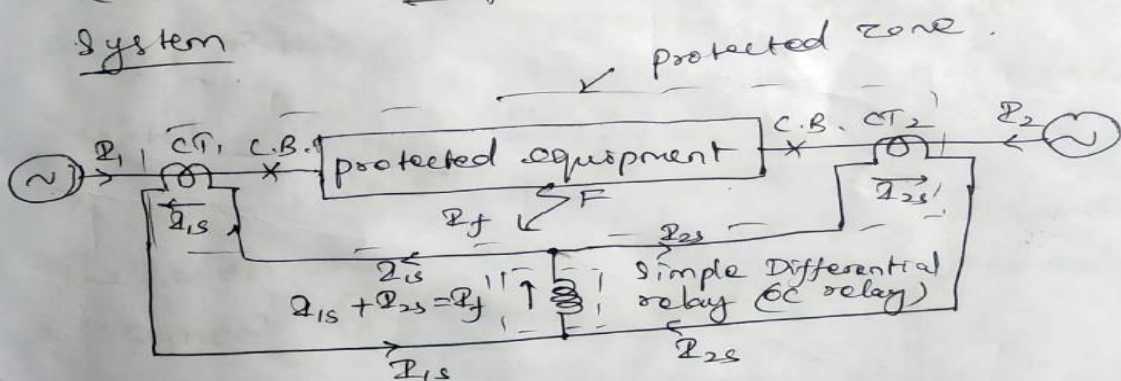 System
protected zone.
I₁ CT₁ C.B. protected equipment C.B. CT₂ I₂
~ ~
I₁s F I₂s
I_f
I₁s I₂s
I₁s + I₂s = I_f Simple Differential
relay (OC relay)
I₁s I₂s